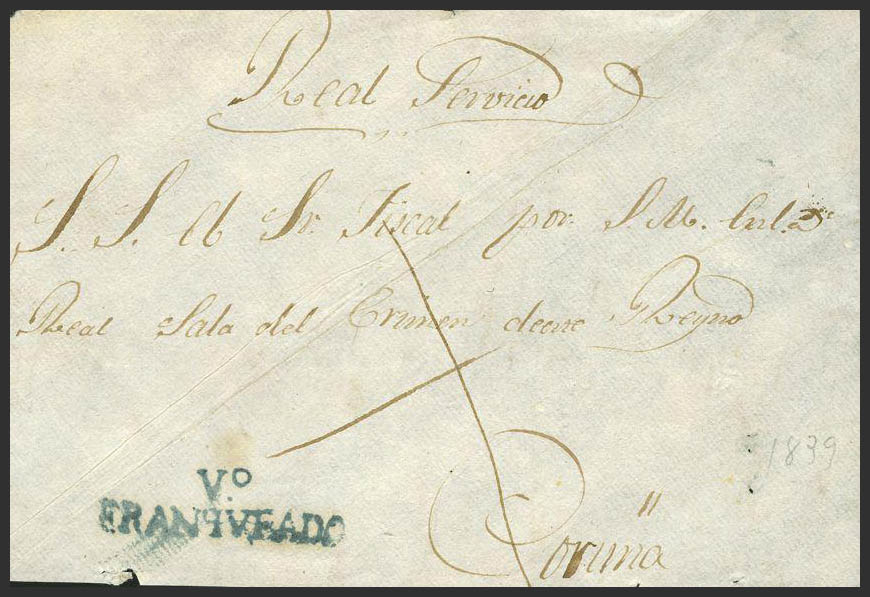 Real Servicio
S. S. El Sr. Fiscal por S. M. En l.
Real Sala del Crimen de ese Reyno
1839
Vº
FRANQVEADO
Coruña